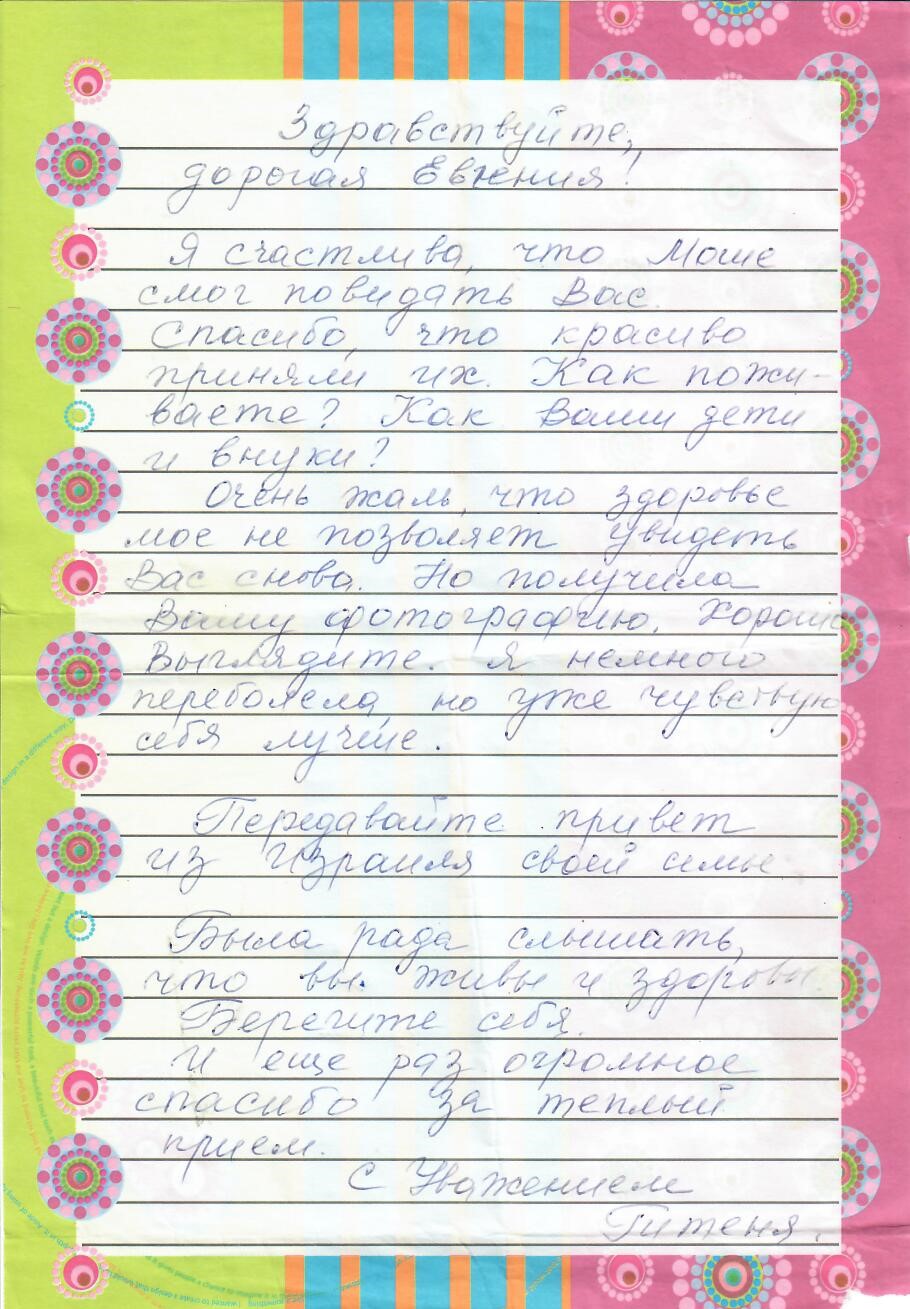 Здравствуйте,
дорогая Евгения!
Я счастлива, что Моше
смог повидать Вас.
Спасибо, что красиво
приняли их. Как пожи-
ваете? Как Ваши дети
и внуки?
Очень жаль, что здоровье
мое не позволяет увидеть
Вас снова. Но получила
Вашу фотографию. Хорошо
выглядите. Я немного
переболела, но уже чувствую
себя лучше.
Передавайте привет
из Израиля своей семье
Была рада слышать,
что вы живы и здоровы.
Берегите себя.
И еще раз огромное
спасибо за теплый
прием.
С Уважением
Гитеня.